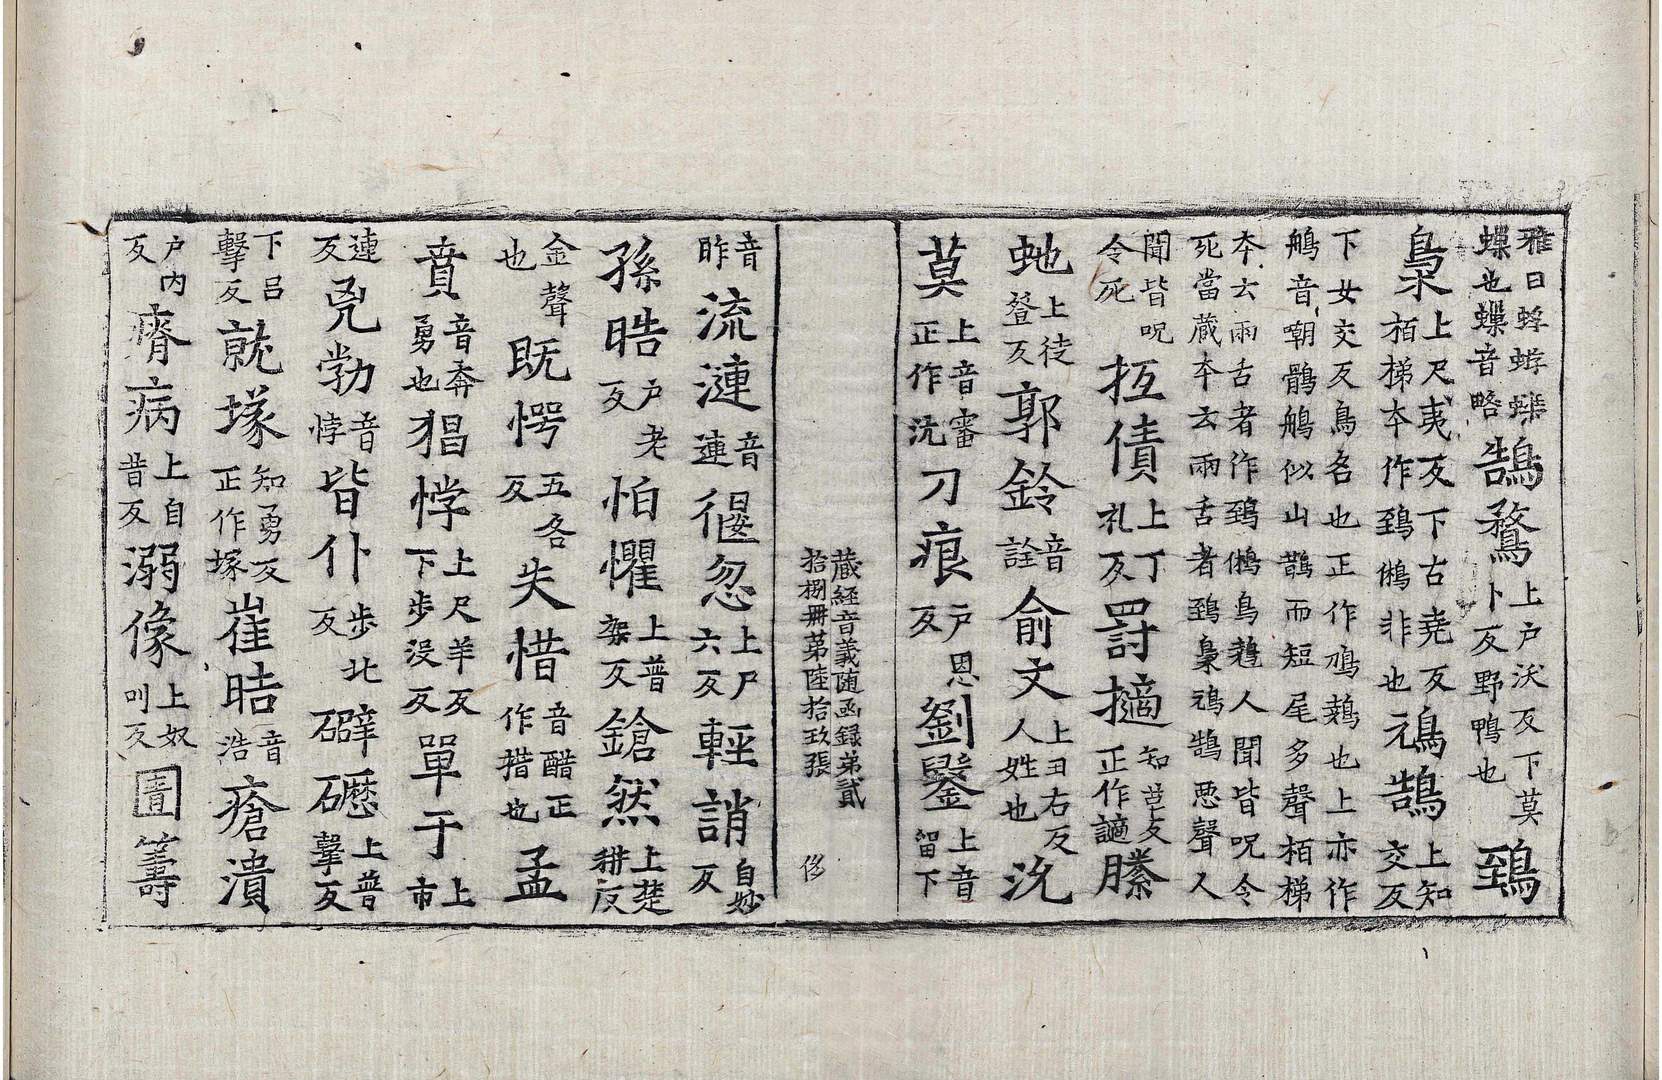 雅曰蜉蝣蜉蝶也蝶音略鵠鶩上户沃反下莫卜反野鴨也鵄
梟上尺夷反下古堯反栢梯本作鵄鵂非也鳿鵠上知交反
下女交反鳥名也正作鳭鷯也上亦作鵃音嘲鶻鵃似山鵲而短尾多聲栢梯
本云兩舌者作鵄鵂鳥鷯人聞皆呪令死當蔵本云兩舌者鵄梟鳿鵠悪聲人
聞皆呪令死抂債上丁礼反罸擿知革反正作謫縢
虵上徒登反郭銓音詮俞文上丑右反人姓也沇
莫上音審正作沈刀痕户恩反劉鑒上音留下
藏経音義随函録弟貳
拾捌冊第陸拾玖張
侈
音昨流漣音連偃忽上尸六反輕誚自妙反
孫晧户老反怕懼上普架反鎗然上楚耕反
金聲也既愕五各反失惜音醋正作措也孟
賁音奔勇也猖悖上尺羊反下步没反單于上市
連反兇勃音悖皆仆步北反礔礰上普擊反
下吕擊反就塜知勇反正作塚崔晧音浩瘡潰
户内反瘠病上自昔反溺像上奴叫反圖籌